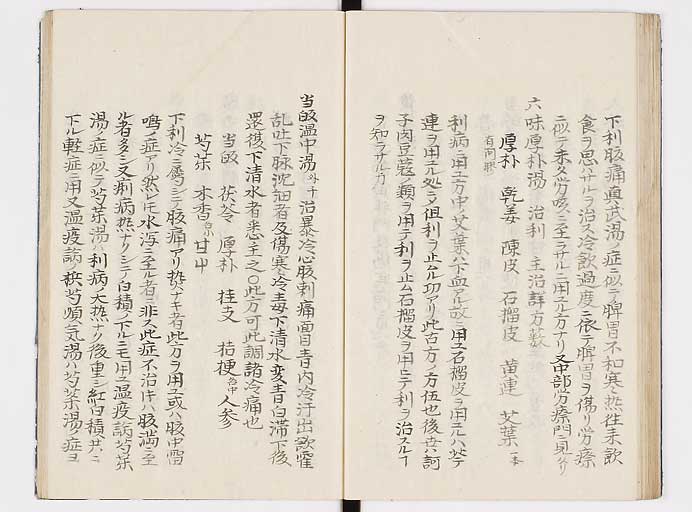 下利腹痛真武湯ノ症ニ似テ脾胃不和寒熱往来飲
食ヲ思ハサルヲ治ス冷飲過度ニ依テ脾胃ヲ傷リ労療
ニ似テ未タ労咳ニ至ラサルニ用ユル方ナリ又中部労療門ニ見ヘタリ
六味厚朴湯 治利 主治詳方
厚朴 乾姜 陳皮 石榴皮 黄連 艾葉
利病ニ用ユ方中艾葉ハ下血アル故ニ用ユ石榴皮ヲ用ユルハ
連ヲ用ユル処ニシテ但利ヲ止ムル功アリ此古方ノ方伍也後世ハ訶
子肉豆蔲ノ類ヲ用テ利ヲ止ム石榴皮ヲ用ヒテ利ヲ治スルヿ
ヲ知ラサルカ
当皈温中湯 治暴冷心腹刺痛面目青肉冷汗出欲霍
乱吐下脉沈細者及傷寒冷毒下清水変青白滞下後
混後下清水者悉主之〇此方可此調諸冷痛也
当皈 茯苓 厚朴 桂支 桔梗 人参
芍薬 木香 甘屮
下利冷ニ属シテ腹痛アリ熱ナキ者此方ヲ用ユ或ハ腹中雷
鳴ノ症アリ然レモ水瀉ニ至ル者ニ非ス此症不治ハ腹満ニ至
ル者多シ又痢病熱ナクシテ白積ノ下ルニモ用ユ温疫論芍薬
湯ノ症ニ似テ芍薬湯ハ利病大熱ナク後重シ紅白積共ニ
下ル軽症ニ用又温疫論ノ槟芍順気湯ハ芍薬湯ノ症ヨ